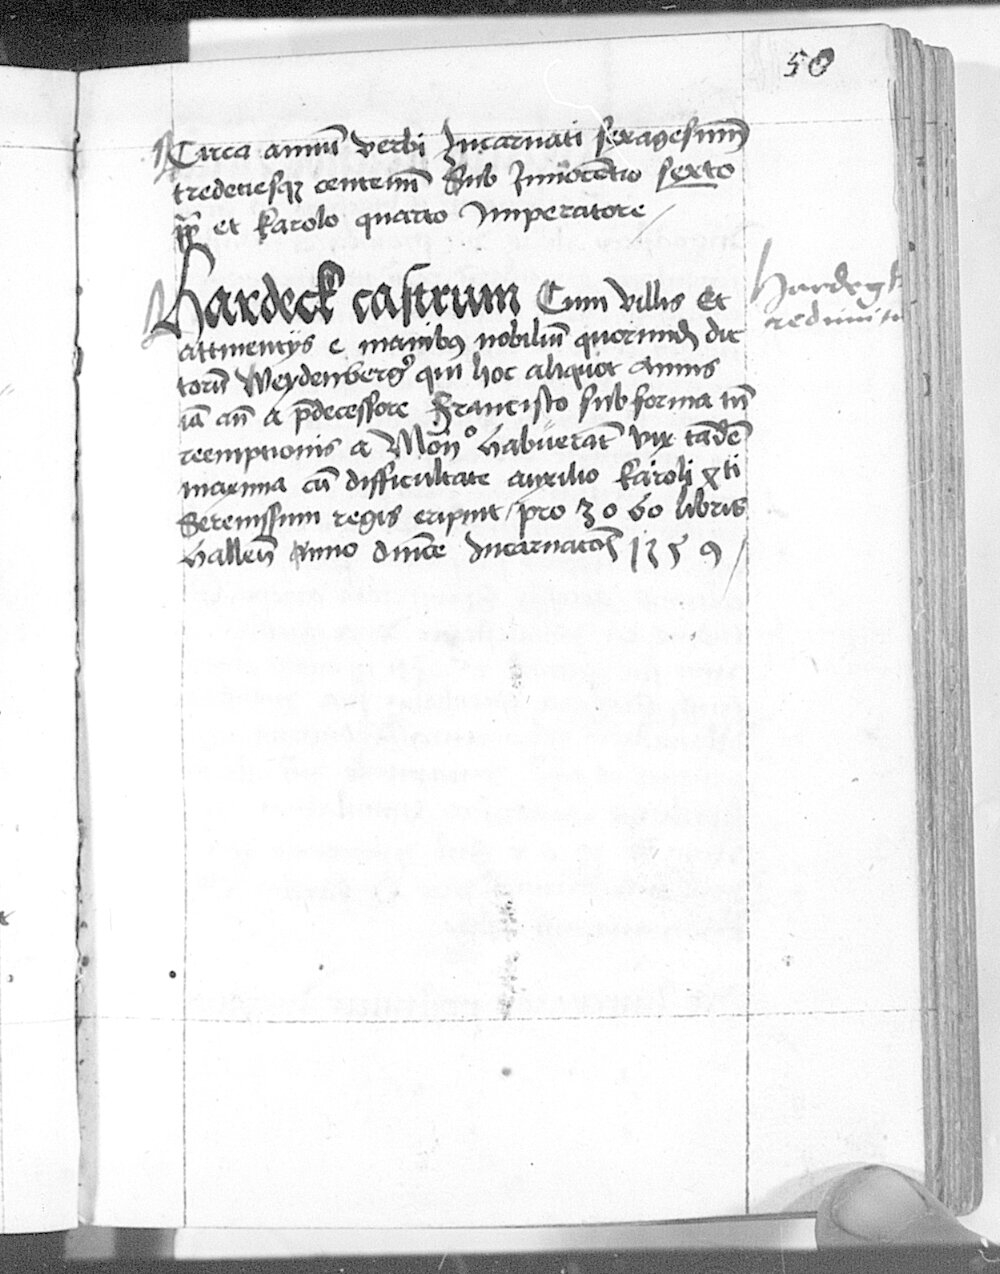 50
Circa annū verbi Incarnati sexagesimū
tredeciesqꝫ centenū Sub Innocentio sexto
pp̄ et karolo quarto Imperatore /
Hardeck castrum Cum villis et
attinentijs e manibꝫ nobiliū quorundā dic
torū Weydenberg qui hoc aliquot annis
iā cū a p̄decessore Francisco sub forma tn̄
reemptionis a Mōn° habuerāt vix tādē
maxima cū difficultate auxilio karoli 4ti
Serenissimi regis eripuit / pro 3060 libris
hallen̄ Anno dn̄ice Incarnatōis 1359 /
Hardegk
redimitur